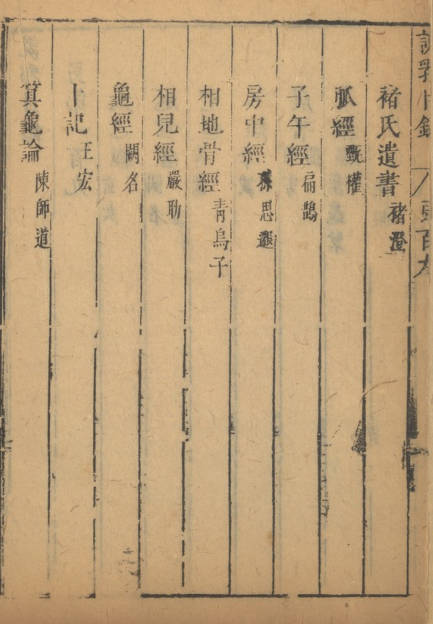 褚氏遺書 褚澄
脈經 甄權
子午經 扁鵲
房中經 孫思邈
相地骨經 青烏子
相兒經 嚴助
龜經 闕名
卜記 王宏
箕龜論 陳師道